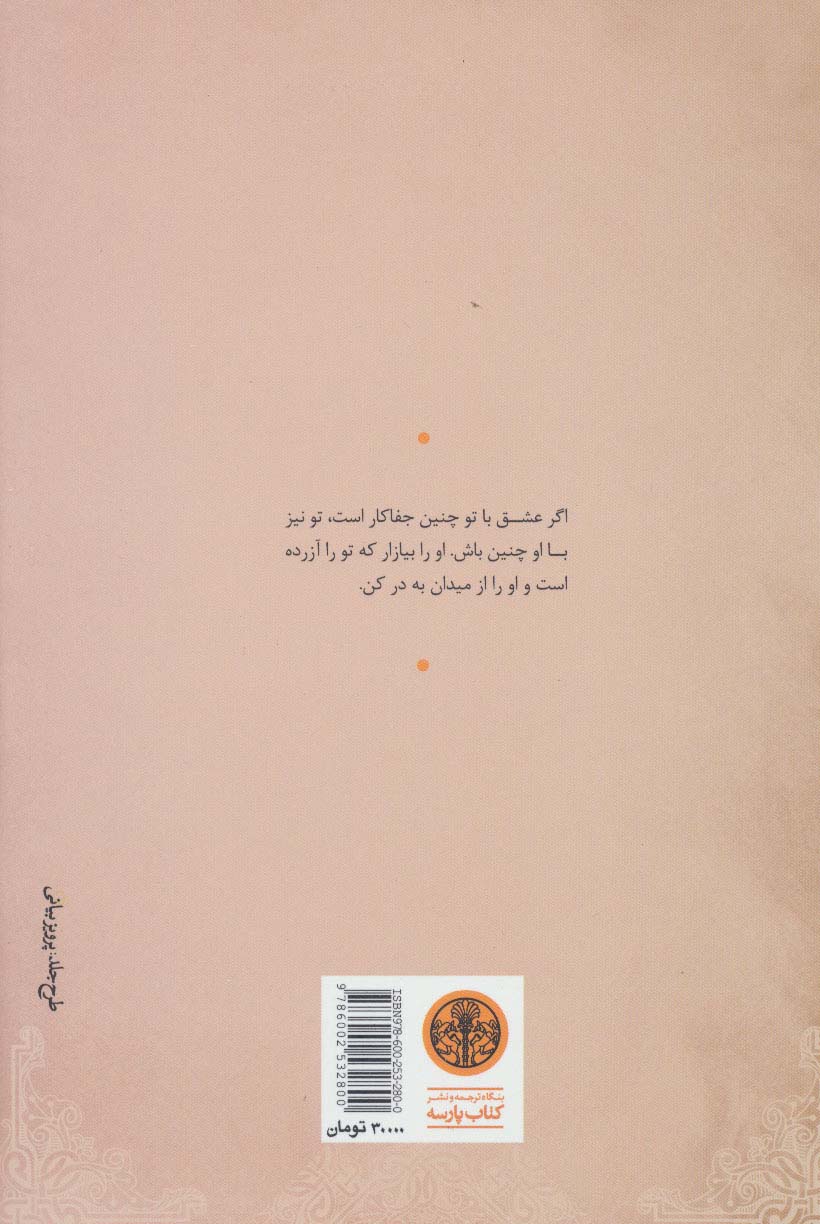 اگر عشق با تو چنین جفاکار است، تو نیز
با او چنین باش. او را بیازار که تو را آزرده
است و او را از میدان به در کن.
طرح جلد: پرویز بیانی
ISBN978-600-253-280-0
9 786002 532800
بنگاه ترجمه و نشر
کتاب پارسه
۳۰۰۰۰ تومان